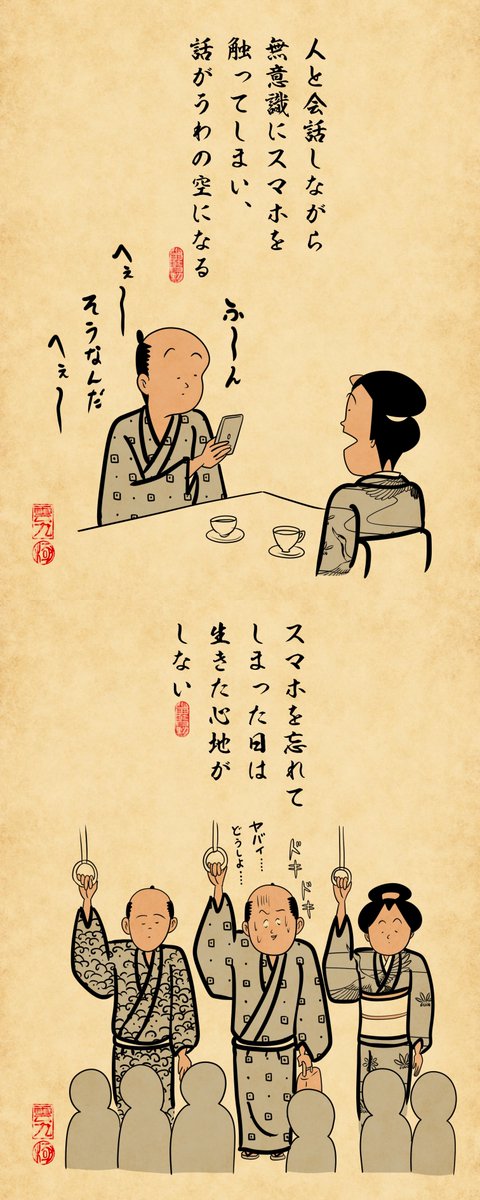 人と会話しながら
無意識にスマホを
触ってしまい、
話がうわの空になる
ふ〜ん
へぇ〜
そうなんだ
へぇ〜
スマホを忘れて
しまった日は
生きた心地が
しない
ドキドキ
ヤバイ…
どうしよ…